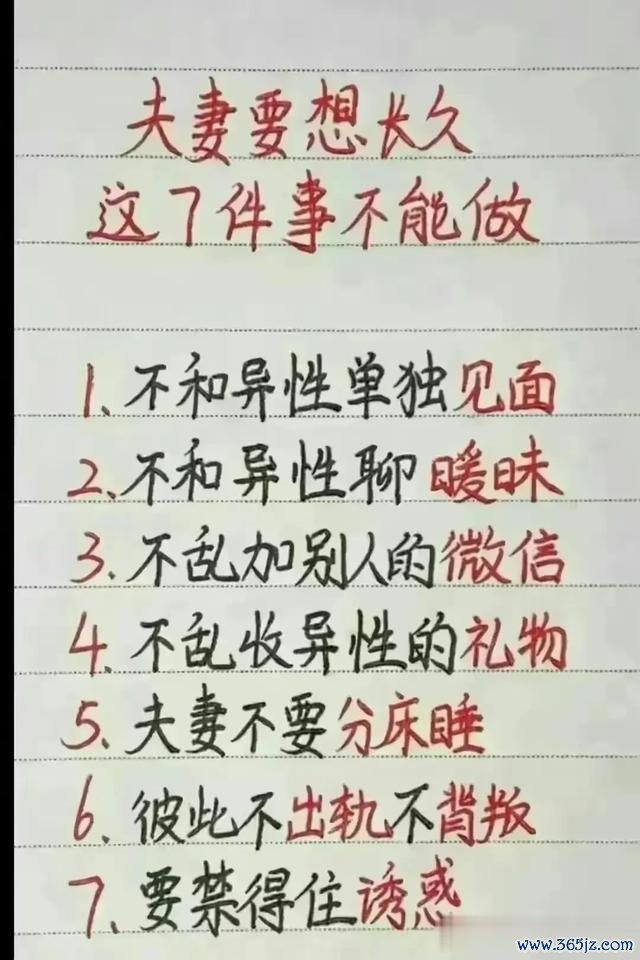 夫妻要想长久
这7件事不能做
1、不和异性单独见面
2、不和异性聊暖昧
3、不乱加别人的微信
4、不乱收异性的礼物
5、夫妻不要分床睡
6、彼此不出轨不背叛
7、要禁得住诱惑
www.365jz.com